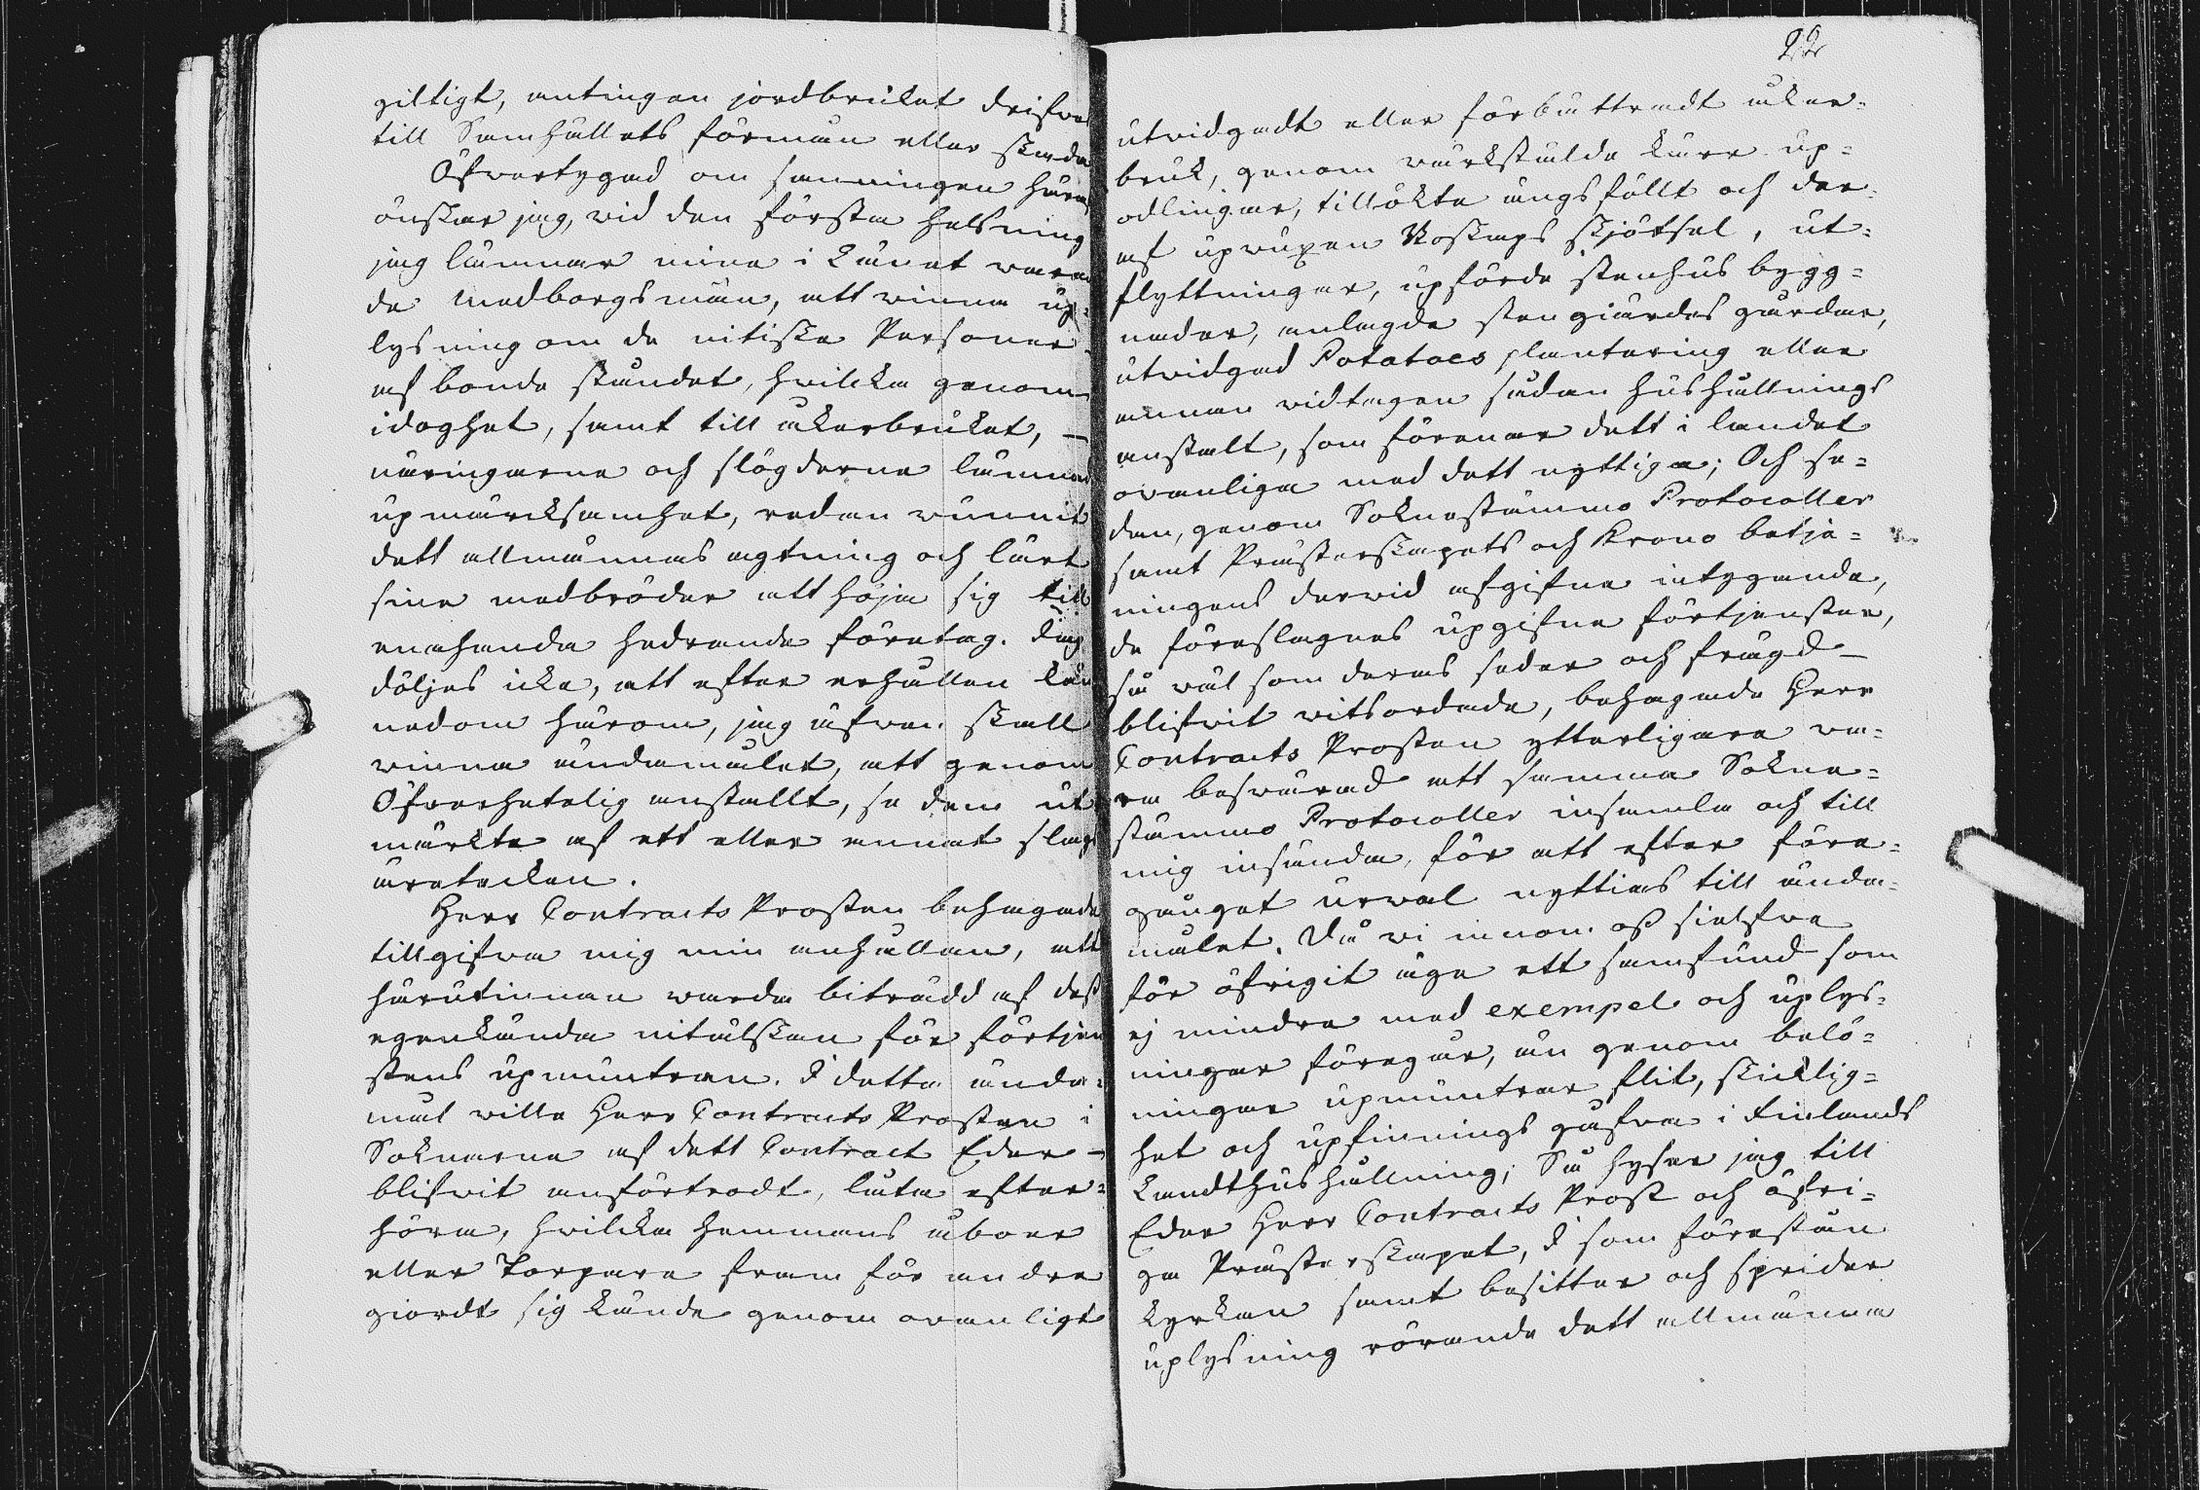 giltigt, antingen jordbruket drifves
till Samhällets förmån eller skada
Öfvertygad om sanningen häraf
önskar jag, vid den första helsning
jag lämnar mina i Länet waran
de medborgsmän, att vinna up-
lysning om de nitiska Personer
af bonde ståndet, hvilcka genom
idoghet, samt till åkerbruket, —
näringarne och slögderne lämnad
upmärcksamhet, redan vunnit
dett allmännas agtning och lärt
sine medbröder att höja sig till
enahanda hedrande företag. Dey
döljes icke, att efter erhållen kän
nedom härom, jag äfven skall
vinna ändamålet, att genom
Öfverhetelig anstallt, se dem ut
märkte af ett eller annat slags
äretecken.
Herr Contracts Prosten behagade
tillgifva mig min anhållan, att
härutinnan warda biträdd af dess
egenkända nitälskan för förtjen
stens upmuntran. I detta ända-
mål wille Herr Contracts Prosten i
Soknarne af dett Contract Eder —
blifvit anförtrodt, låta efter-
höra, hvilcka hemmans åboer
eller Torpare fram för andra
giordt sig kände genom ovanligt
22
utvidgadt eller förbättradt åker-
bruk, genom wärkstälde kärr up-
odlingar, tillökte ängsfällt och der-
af upvuxen Boskaps skjötsel, ut-
flyttningar, upförde stenhus bygg-
nader, anlagde stengiärdes gårdar,
utvidgad Potatoes plantering eller
annan vidtagen sådan hushållnings
anstalt, som förenar dett i landet
ovanliga med dett nyttiga; Och se-
dan, genom Soknestämmo Protocoller
samt Prästerskapets och Krono betje-
ningens dervid afgifne intygande,
de föreslagnes upgifne förtjenster,
så väl som deras seder och frägd —
blifvit vitsordade, behagade Herr
Contracts Prosten ytterligare va-
ra besvärad att samma Sokne-
stämmo Protocoller insamla och till
mig insända, för att efter före-
gånget urval nyttias till ända-
målet. Då vi innom oss sielfve
för öfrigit äge ett samfund som
ej mindre med exempel och uplys-
ningar föregår, än genom belö-
ningar upmuntrar flit, skicklig-
het och upfinnings gåfva i Finlands
Landthushållning; Så hyser jag till
Eder Herr Contracts Prost och öfri-
ga Prästerskapet, I som förestån
kyrkan samt besitter och sprider
uplysning rörande dett allmänna